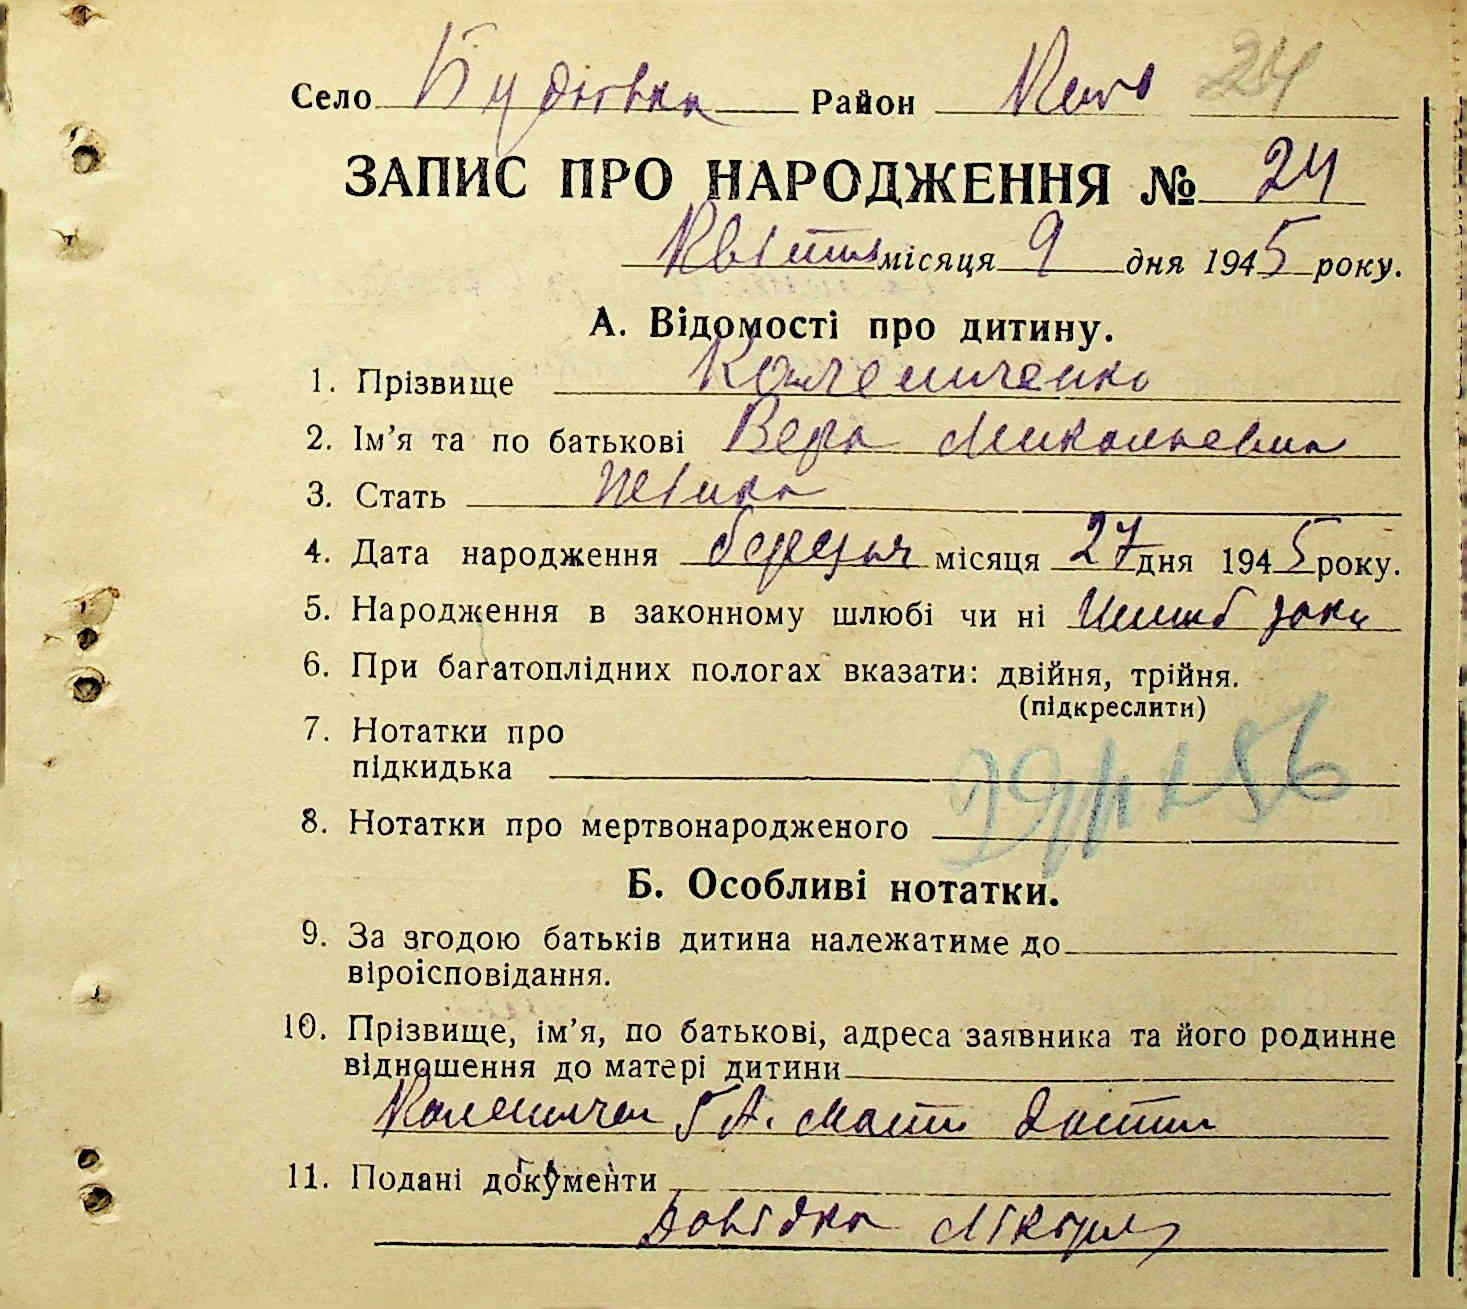 Село Будновка Район 24
ЗАПИС ПРО НАРОДЖЕННЯ № 24
Квітня місяця 9 дня 1945 року.
А. Відомості про дитину.
1. Прізвище
2. Ім’я та по батькові Вера Миколаевна
3. Стать жіика
4. Дата народження березня місяця 27 дня 1945 року.
5. Народження в законному шлюбі чи ні
6. При багатоплідних пологах вказати: двійня, трійня.
(підкреслити)
7. Нотатки про
підкидька
8. Нотатки про мертвонародженого
Б. Особливі нотатки.
9. За згодою батьків дитина належатиме до
віроісповідання.
10. Прізвище, ім’я, по батькові, адреса заявника та його родинне
відношення до матері дитини
мати дитини
11. Подані документи
Довідка лікаря